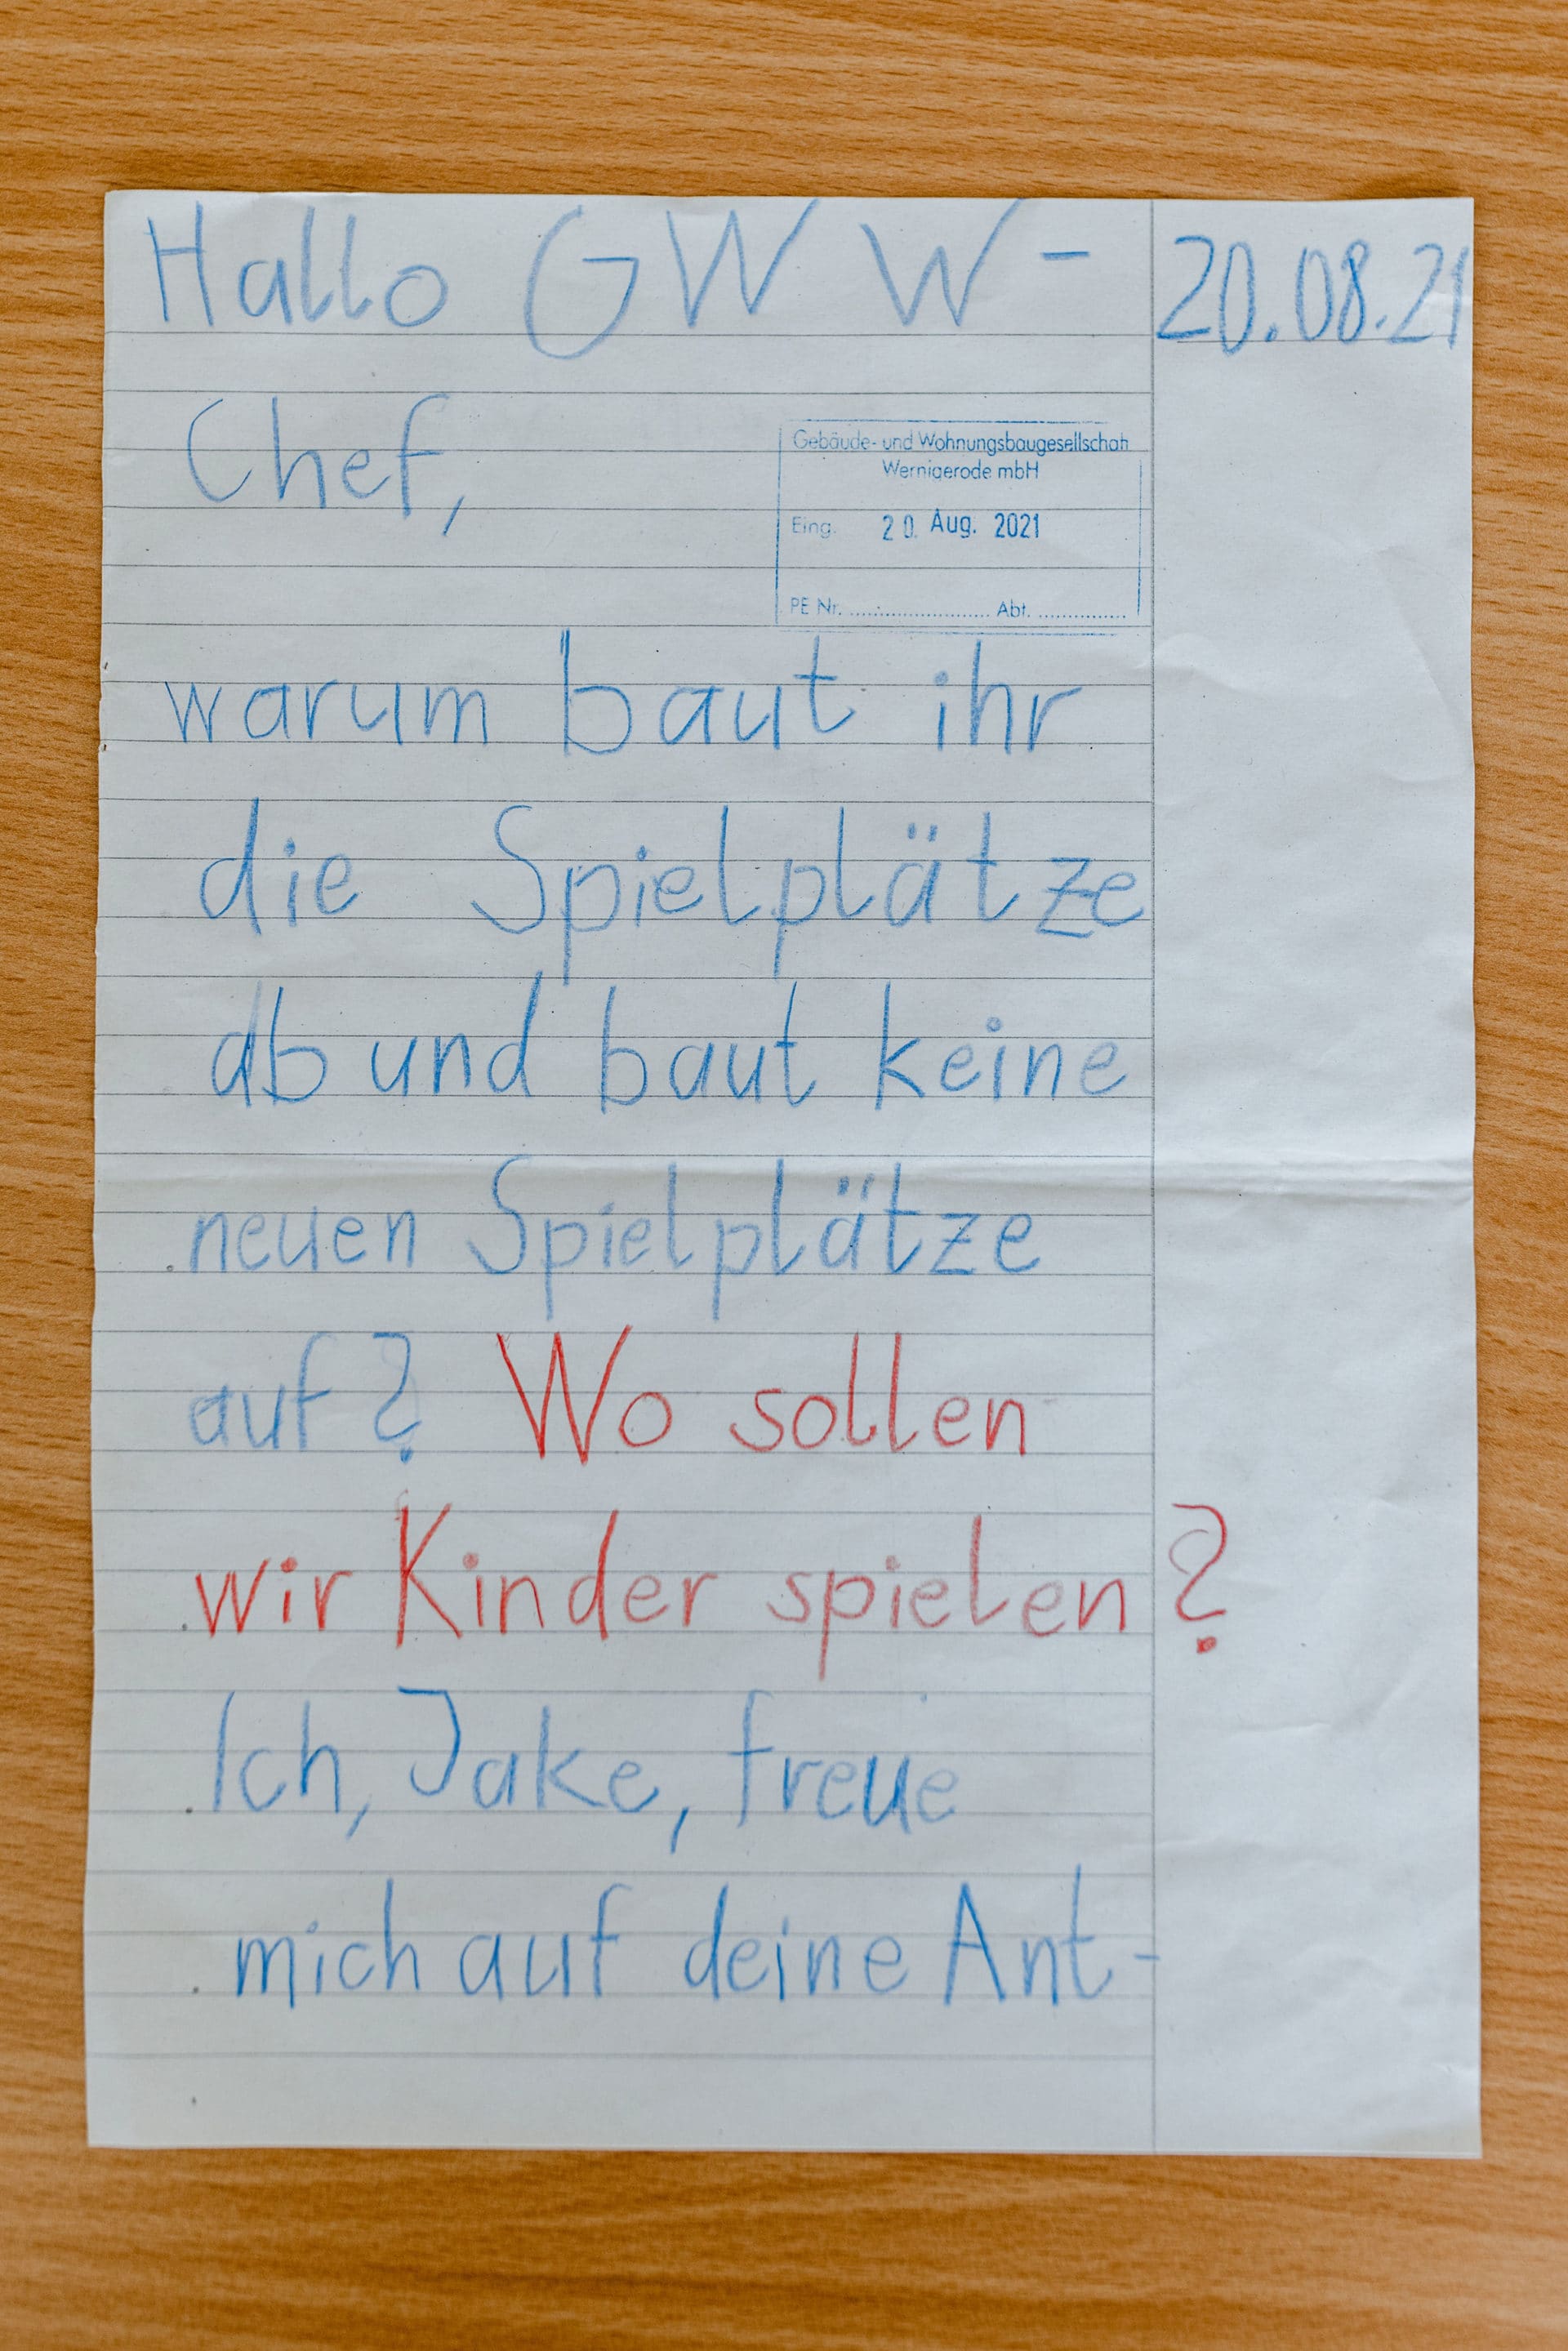 Hallo GWW- 20.08.21
Chef,
Gebäude- und Wohnungsbaugesellschaft
Wernigerode mbH
Eing. 20. Aug. 2021
PE Nr. ........................ Abt. ...............
warum baut ihr
die Spielplätze
ab und baut keine
neuen Spielplätze
auf? Wo sollen
wir Kinder spielen?
Ich, Jake, freue
mich auf deine Ant-